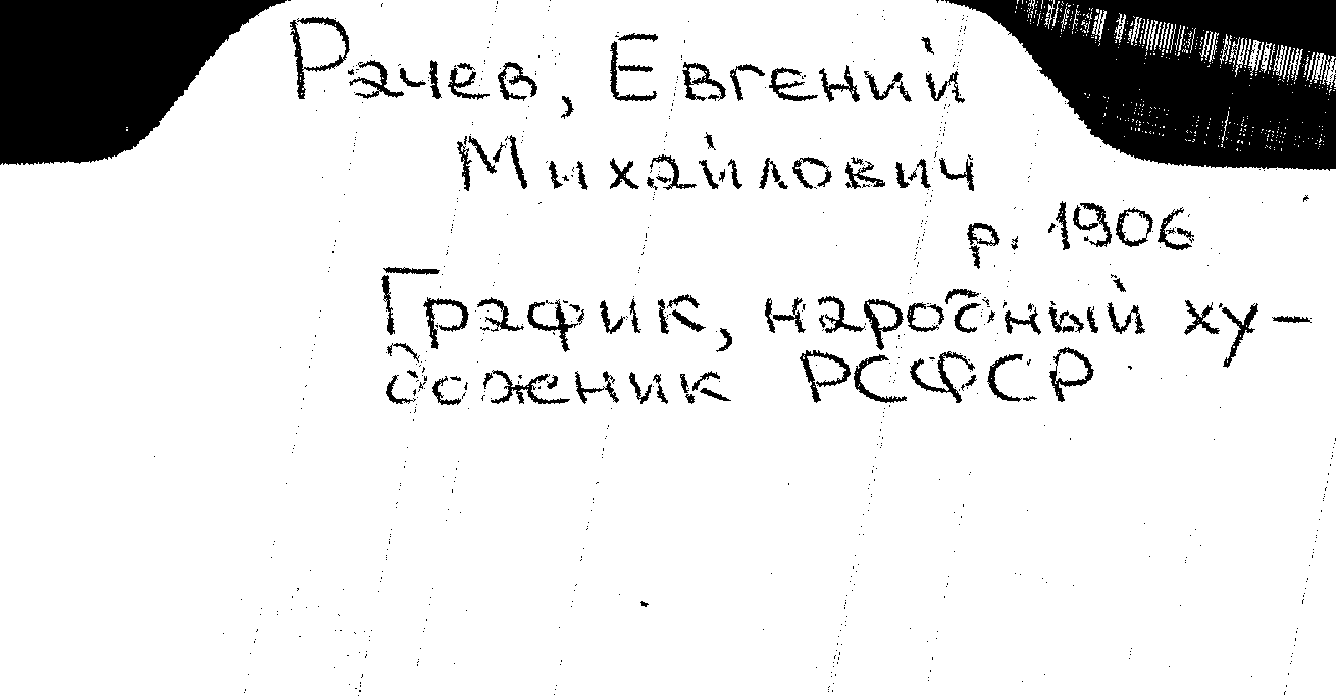 Рачев, Евгений
Михайлович
р. 1906
График, народный ху-
дожник РСФСР